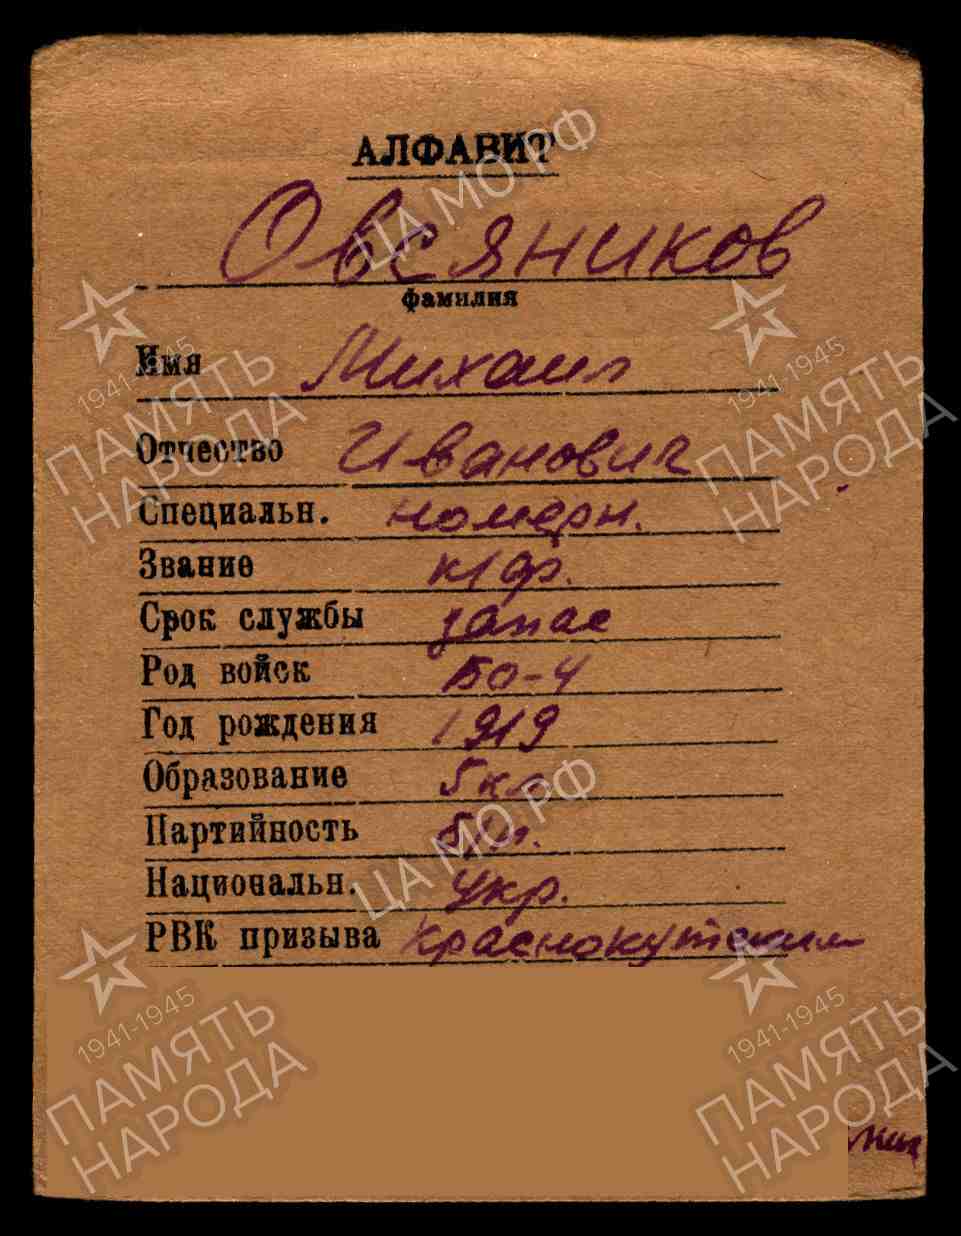 АЛФАВИТ
Овсяников
фамилия
Имя Михаил
Отчество Иванович
Специальн. номерн.
Звание к/ф.
Срок службы запас
Род войск БО-4
Год рождения 1919
Образование 5 кл
Партийность б/п.
Национальн. укр.
РВК призыва Краснокутским
ЦА МО РФ
1941-1945
ПАМЯТЬ
НАРОДА
1941-1945
ПАМЯТЬ
НАРОДА
ЦА МО РФ
1941-1945
ПАМЯТЬ
НАРОДА
1941-1945
ПАМЯТЬ
НАРОДА